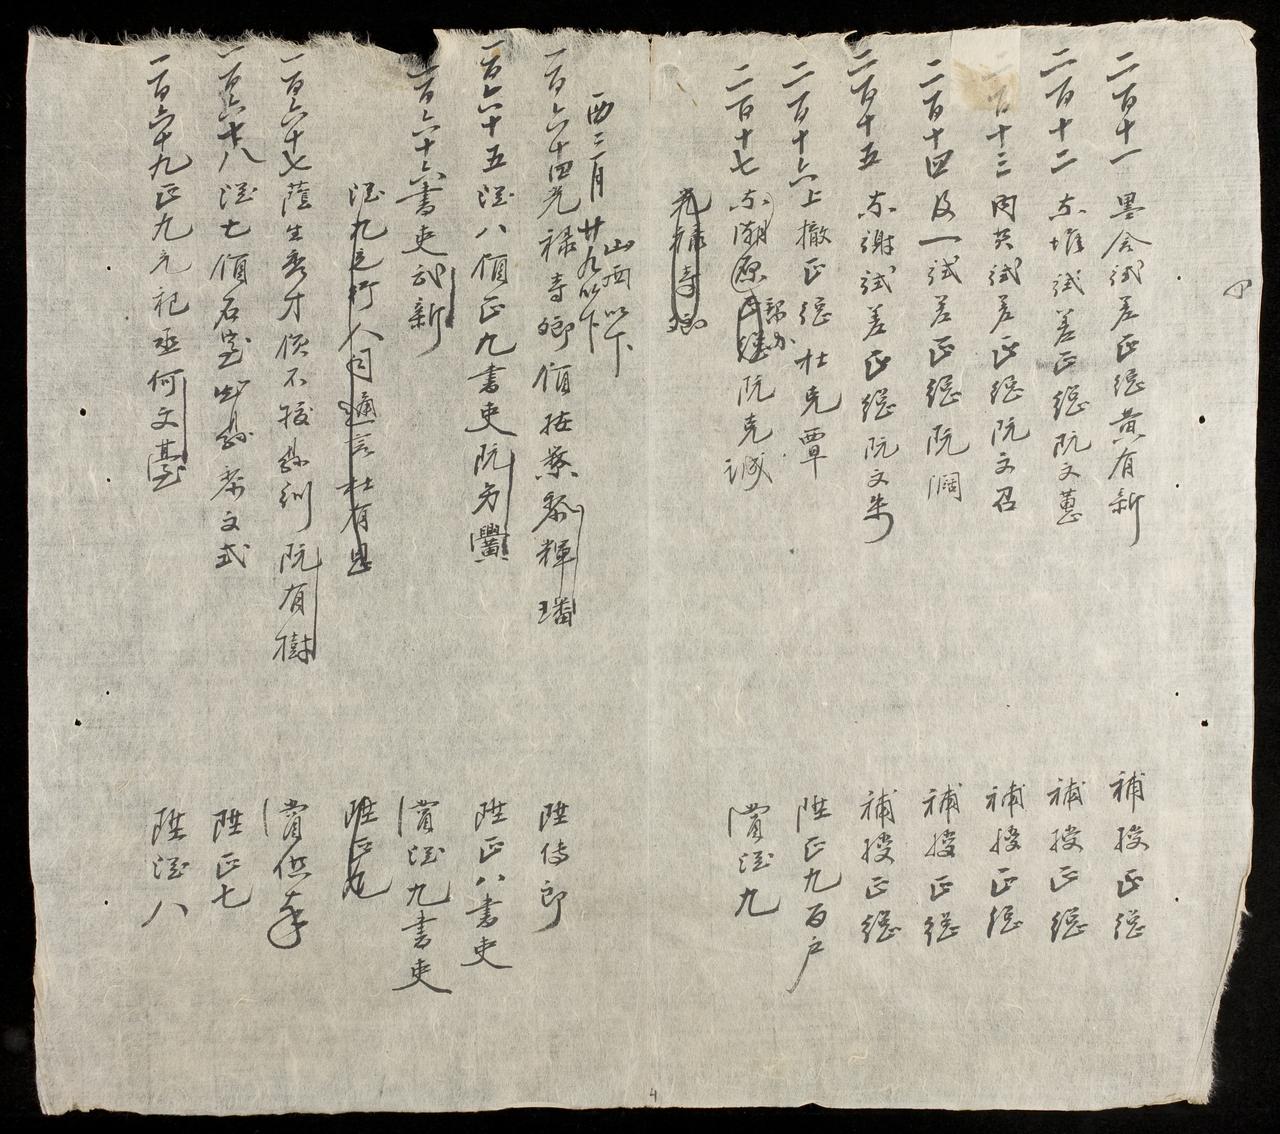 二百十一 墨会試差正總黄有新 補授正總
二百十二 东堆試差正總阮文蕙 補授正總
二百十三 同芄試差正總阮文召 補授正總
二百十四 设一試差正總阮濶 補授正總
二百十五 东谢試差正總阮文朱 補授正總
二百十六 上撤正總杜克覃 陞正九百户
二百十七 东潮原 阮克誠 賞從九
光禄寺卿
酉二月廿九以下
山西以下
一百六十四 光禄寺卿領按察黎輝璠 陞侍郎
一百六十五 從八領正九書吏阮芳 陞正八書吏
一百六十六 書吏武新 賞從九書吏
從九 行人司通言杜有思 陞正九
一百六十七 蔭生秀才 不拔 訓阮有樹 賞供奉
一百六十八 從七領石室 黎文式 陞正七
一百六十九 正九 祀丞何文臺 陞從八
4